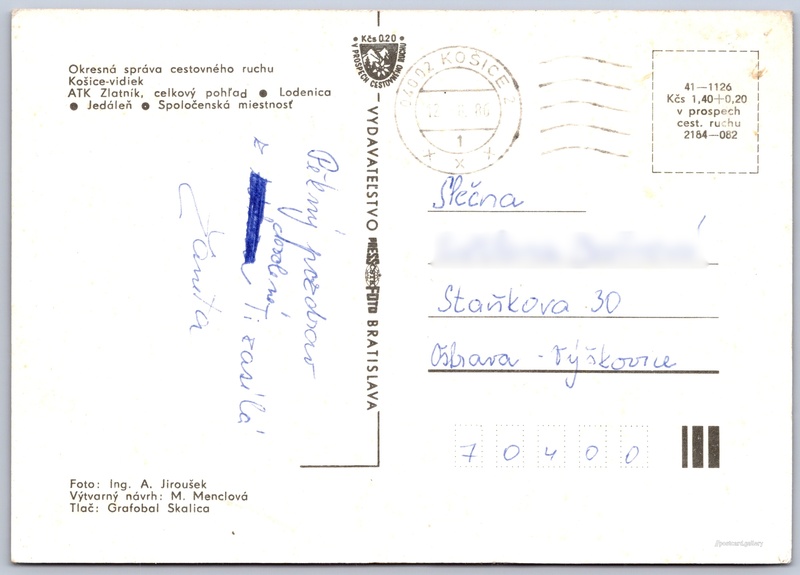 Okresná správa cestovného ruchu
Košice-vidiek
ATK Zlatník, celkový pohľad ● Lodenica
● Jedáleň ● Spoločenská miestnosť
Kčs 0.20
V PROSPECH CESTOVNÉHO RUCHU
04002 KOŠICE 2
86
1
41—1126
Kčs 1,40+0,20
v prospech
cest. ruchu
2184—082
Pěkný pozdrav
z dovolené
Ti zasílá
VYDAVATEĽSTVO PRESSFOTO BRATISLAVA
Slečna
Staňkova 30
Ostrava - Výškovice
70400
Foto: Ing. A. Jiroušek
Výtvarný návrh: M. Menclová
Tlač: Grafobal Skalica